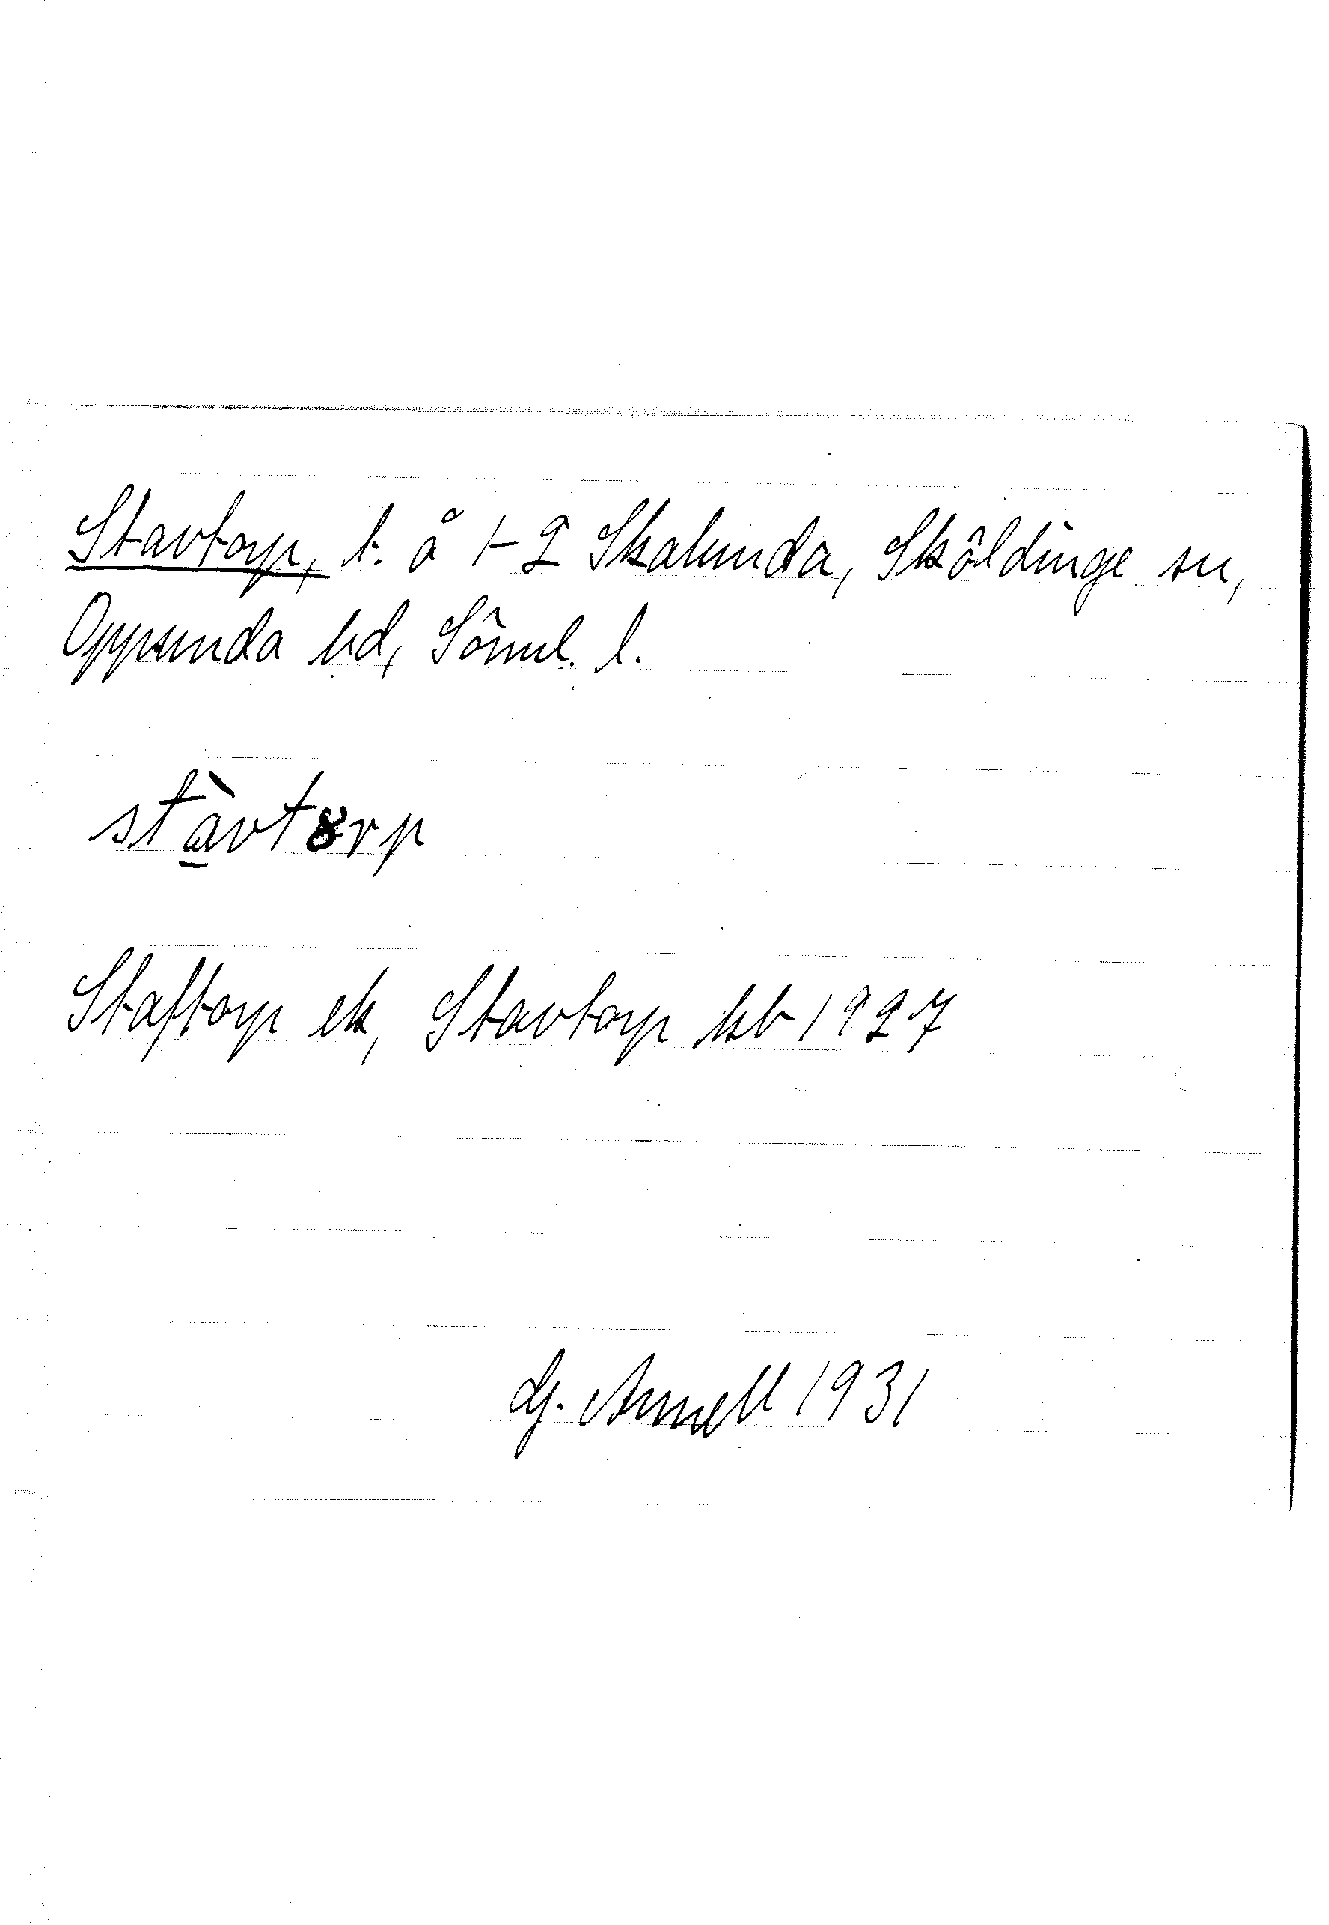 Stavtorp, l. å 1-2 Skalunda, Sköldinge sn,
Oppunda hd, Söml. l.
stàvtȣrp
Staftorp ek, Stavtorp kb 1927
G. Arnell 1931